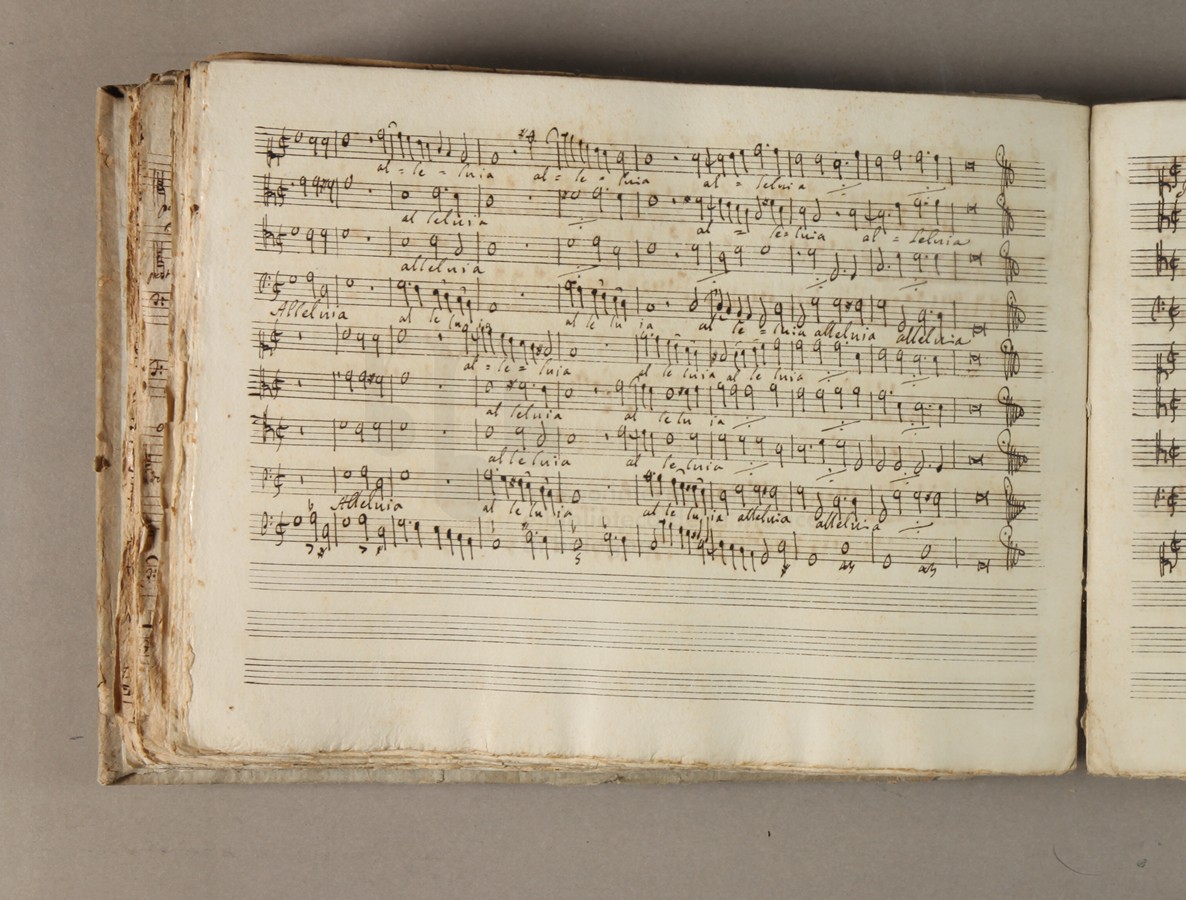 al = le = luia al = le = luia al = leluia
alleluia al = le = luia al = leluia
alleluia
Alleluia al le lu ia al le lu ia al le = luia alleluia alleluia
al = le = luia al le luia al le luia
al leluia al le lu ia
al le luia al le luia
Alleluia al le lu ia al le lu ia alleluia alleluia